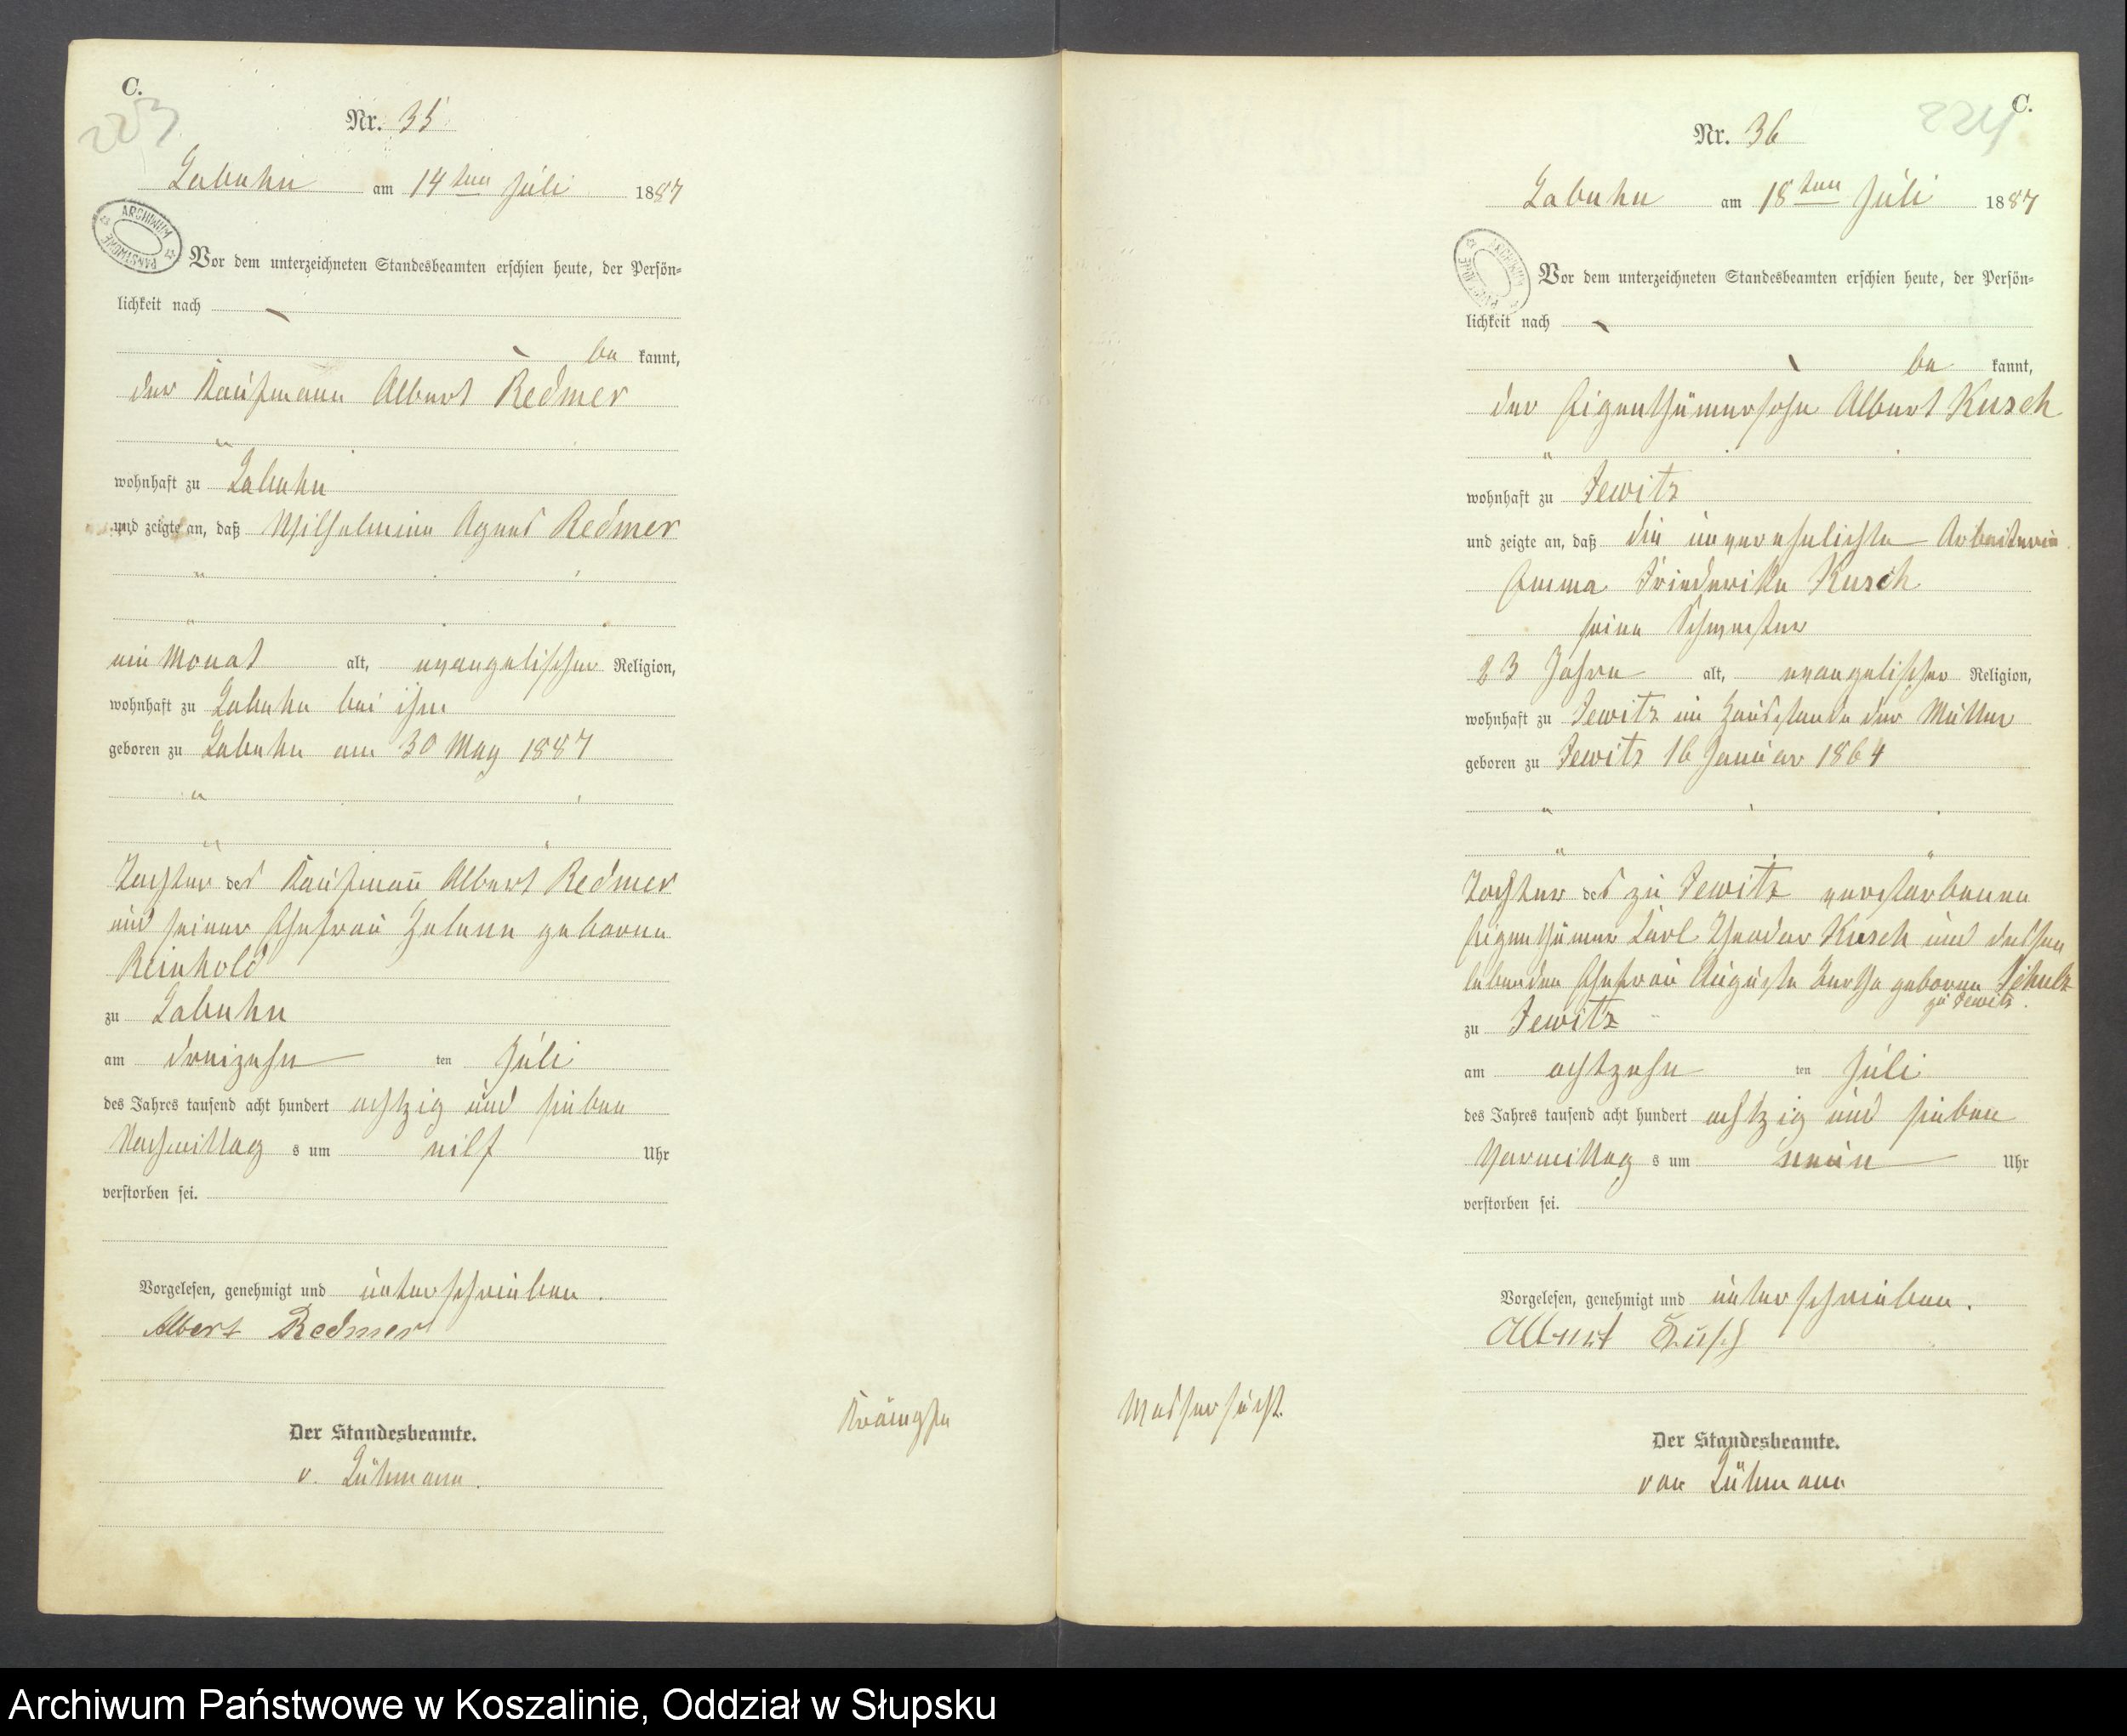 C.
223
Nr. 35
Labuhn am 14ten Juli 1887
ARCHIWUM PAŃSTWOWE
Vor dem unterzeichneten Standesbeamten erschien heute, der Persön=
lichkeit nach
be kannt,
der Kaufmann Albert Redmer
wohnhaft zu Labuhn
und zeigte an, daß Wilhelmine Agnes Redmer
ein Monat alt, evangelischer Religion,
wohnhaft zu Labuhn bei ihm
geboren zu Labuhn am 30 May 1887
Tochter des Kaufmañ Albert Redmer
und seiner Ehefrau Helene geborne
Reinhold
zu Labuhn
am dreizehn ten Juli
des Jahres tausend acht hundert achtzig und sieben
Nachmittag s um eilf Uhr
verstorben sei.
Vorgelesen, genehmigt und unterschrieben.
Albert Redmer
Der Standesbeamte.
v. Lühmann.
Krämpfe
C.
224
Nr. 36
Labuhn am 18ten Juli 1887
ARCHIWUM PAŃSTWOWE
Vor dem unterzeichneten Standesbeamten erschien heute, der Persön=
lichkeit nach
be kannt,
der Eigenthümersohn Albert Kusch
wohnhaft zu Jewitz
und zeigte an, daß die unverehelichte Arbeiterin
Emma Friederike Kusch
seine Schwester
23 Jahre alt, evangelischer Religion,
wohnhaft zu Jewitz im Hausstande der Mutter
geboren zu Jewitz 16 Januar 1864
Tochter des zu Jewitz verstorbenen
Eigenthümer Carl Theodor Kusch und dessen
lebenden Ehefrau Auguste Bertha geborne Schulz
zu Jewitz.
zu Jewitz
am achtzehn ten Juli
des Jahres tausend acht hundert achtzig und sieben
Vormittag s um neun Uhr
verstorben sei.
Vorgelesen, genehmigt und unterschrieben.
Albert Kusch
Wassersucht.
Der Standesbeamte.
von Lühmann
Archiwum Państwowe w Koszalinie, Oddział w Słupsku